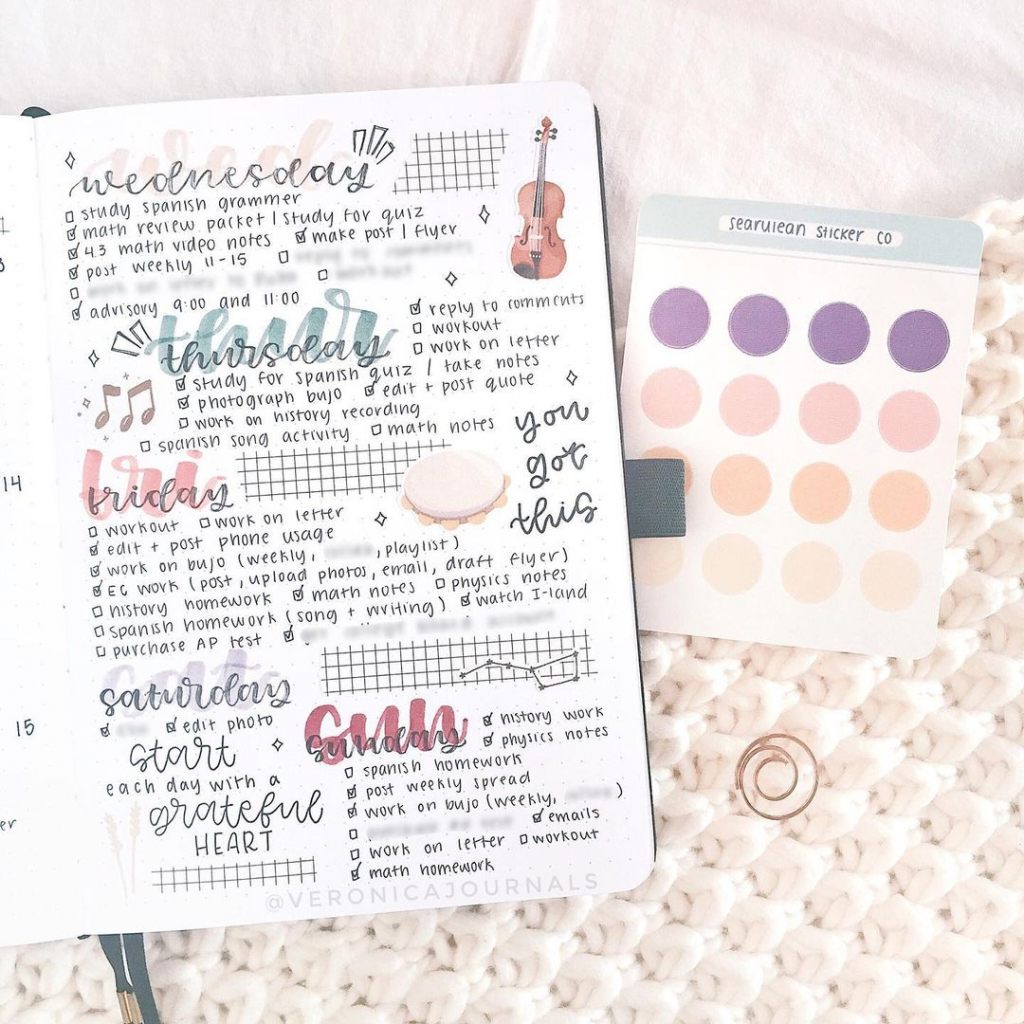 14
15
wed
wednesday
study spanish grammer
math review packet / study for quiz
4.3 math video notes make post / flyer
post weekly 11-15
advisory 9:00 and 11:00
reply to comments
workout
work on letter
thur
thursday
study for spanish quiz / take notes
photograph bujo edit + post quote
work on history recording
spanish song activity math notes
you
got
this
fri
friday
workout work on letter
edit + post phone usage
work on bujo (weekly, , playlist)
EC work (post, upload photos, email, draft flyer)
history homework math notes physics notes
spanish homework (song + writing) watch I-land
purchase AP test
sat
saturday
edit photo
start
each day with a
grateful
HEART
sun
sunday
history work
physics notes
spanish homework
post weekly spread
work on bujo (weekly, )
emails
work on letter workout
math homework
@VERONICAJOURNALS
searulean sticker co